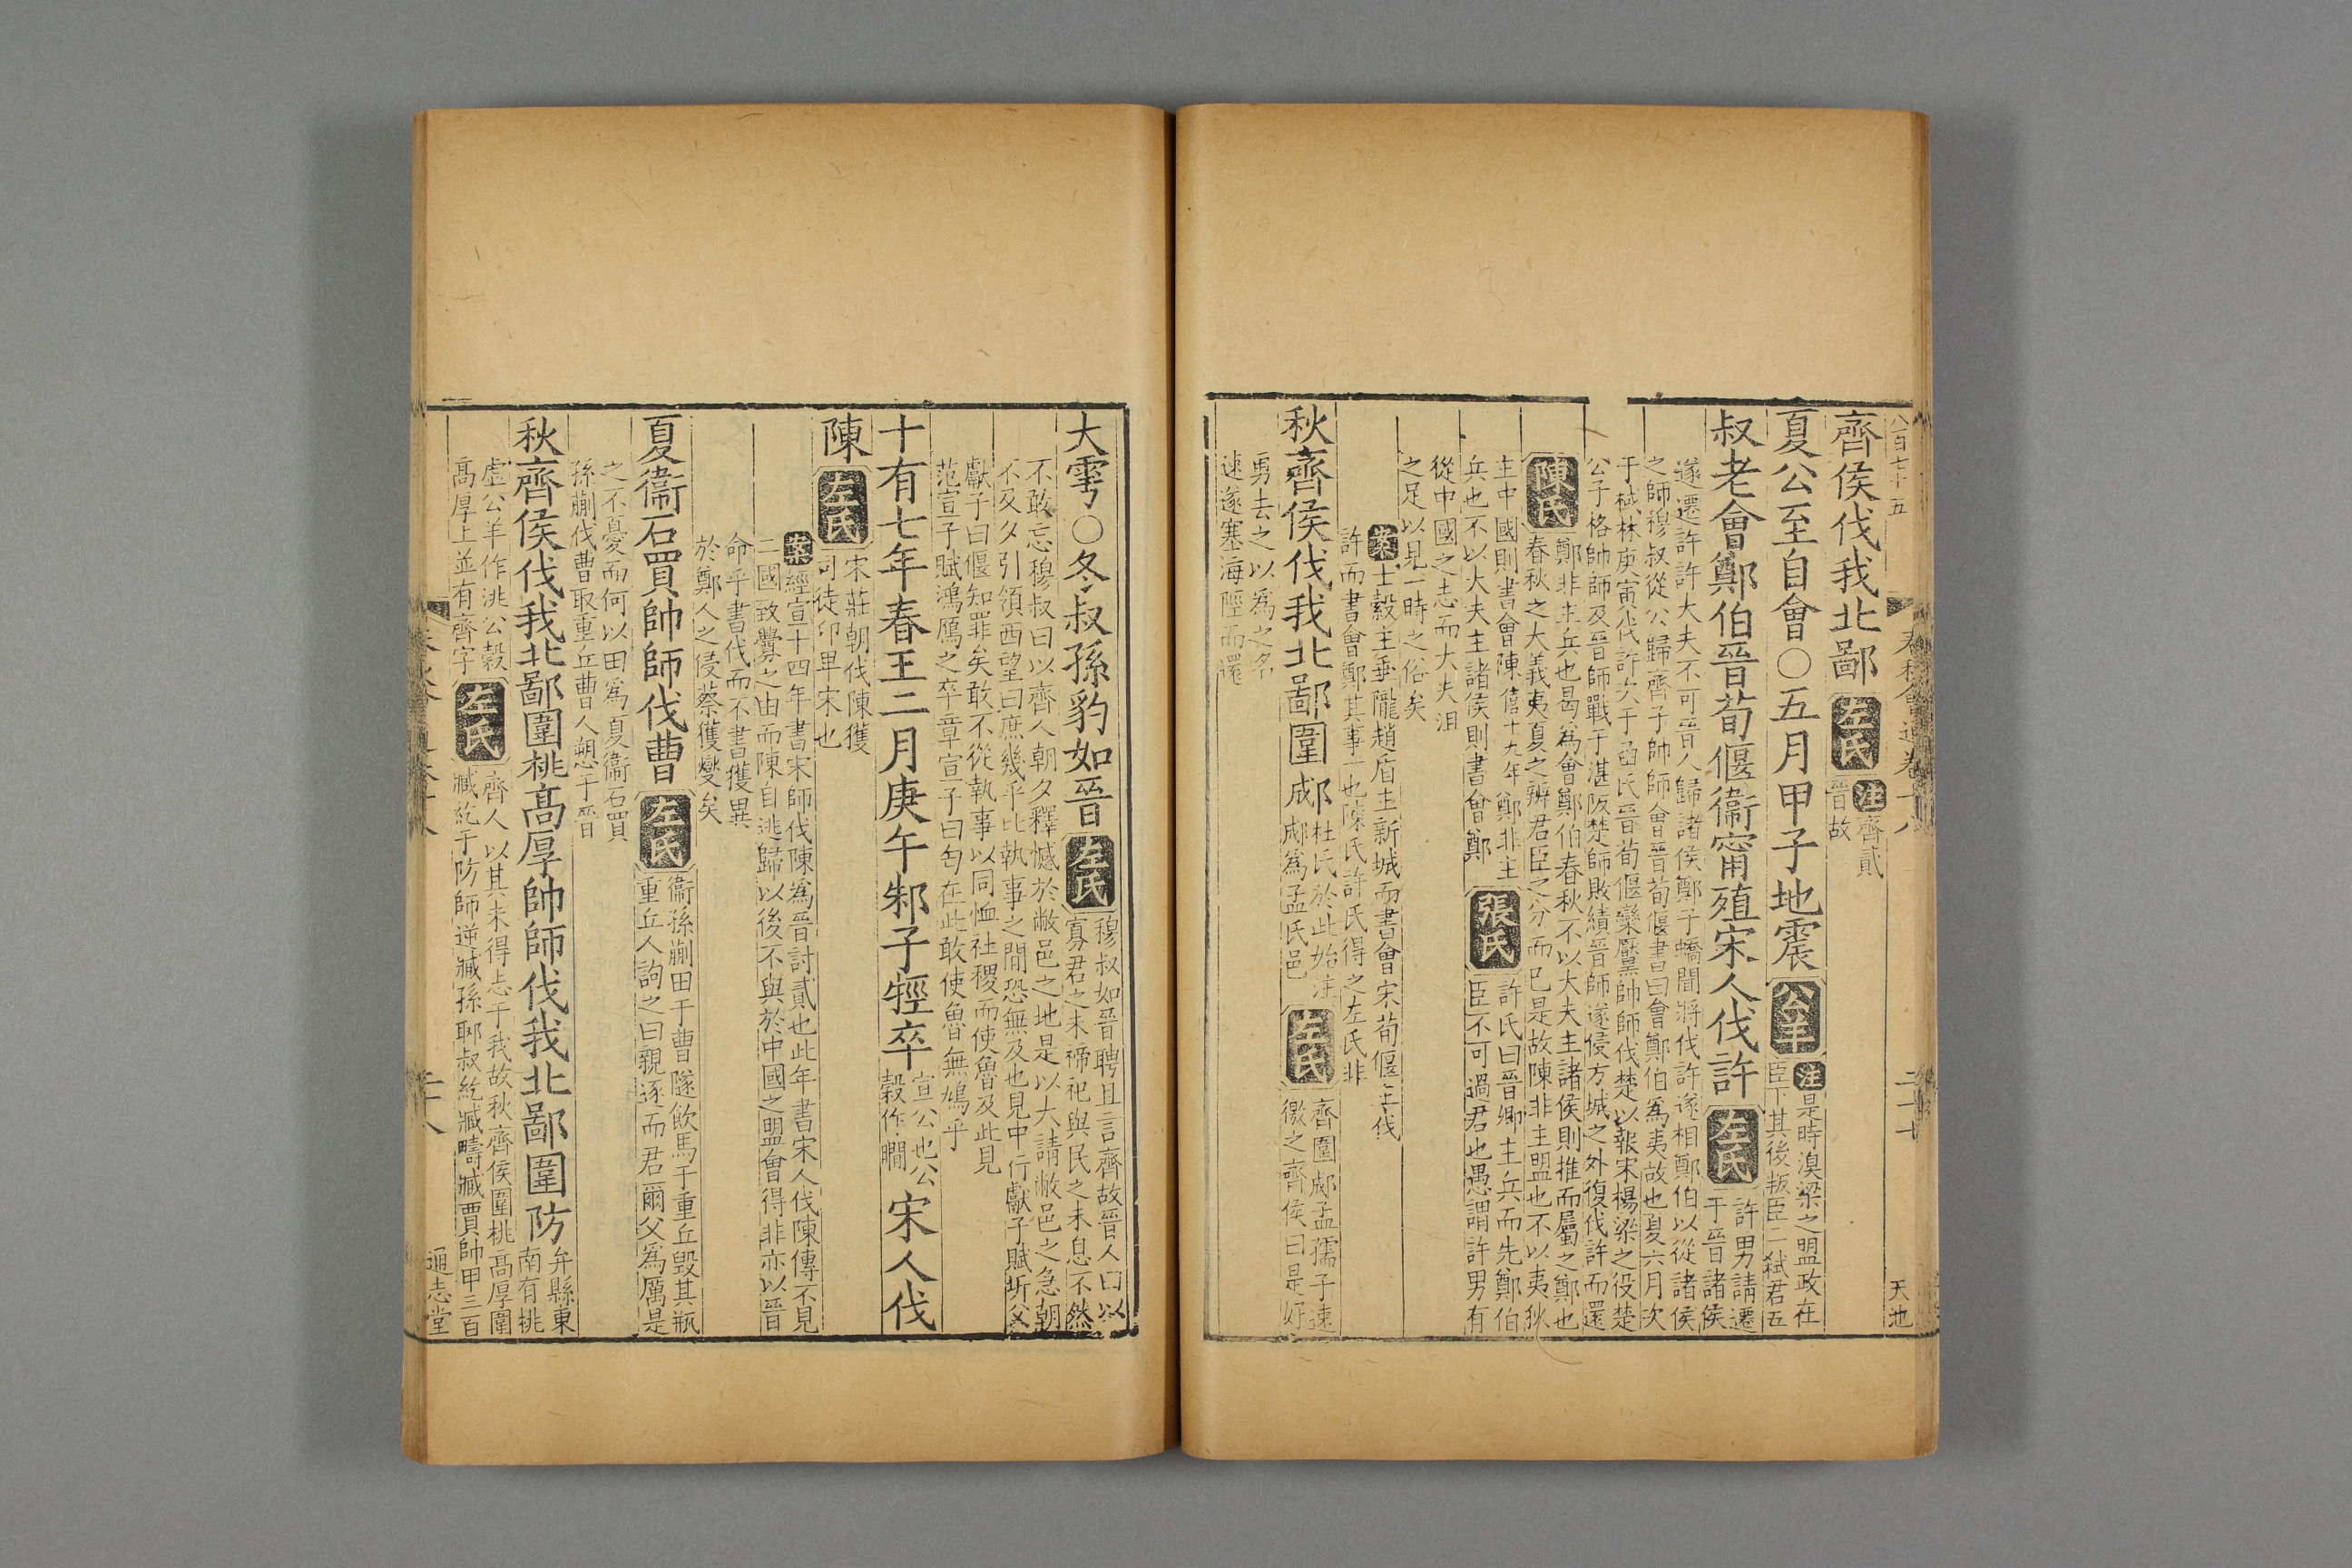 八百七十五
春秋會通卷十八
二十七
天池
齊侯伐我北鄙左氏注齊貳
晉故
夏公至自會○五月甲子地震公羊注是時溴梁之盟政在
臣下其後叛臣二弑君五
叔老會鄭伯晉荀偃衞甯殖宋人伐許左氏許男請遷
于晉諸侯
遂遷許許大夫不可晉人歸諸侯鄭子蟜聞將伐許遂相鄭伯以從諸侯
之師穆叔從公歸齊子帥師會晉荀偃書曰會鄭伯爲夷故也夏六月次
于棫林庚寅伐許次于函氏晉荀偃欒黶帥師伐楚以報宋楊梁之役楚
公子格帥師及晉師戰于湛阪楚師敗績晉師遂侵方城之外復伐許而還
陳氏鄭非主兵也曷爲會鄭伯春秋不以大夫主諸侯則推而屬之鄭也
春秋之大義夷夏之辨君臣之分而已是故陳非主盟也不以夷狄
主中國則書會陳僖十九年鄭非主
兵也不以大夫主諸侯則書會鄭張氏許氏曰晉卿主兵而先鄭伯
臣不可過君也愚謂許男有
從中國之志而大夫沮
之足以見一時之俗矣
案士縠主垂隴趙盾主新城而書會宋荀偃主伐
許而書會鄭其事一也陳氏許氏得之左氏非
秋齊侯伐我北鄙圍郕杜氏於此始注
郕爲孟氏邑左氏齊圍郕孟孺子速
徼之齊侯曰是好
勇去之以爲之名
速遂塞海陘而還
大雩○冬叔孫豹如晉左氏穆叔如晉聘且言齊故晉人曰以
寡君之未禘祀與民之未息不然
不敢忘穆叔曰以齊人朝夕釋憾於敝邑之地是以大請敝邑之急朝
不及夕引領西望曰庶幾乎比執事之閒恐無及也見中行獻子賦圻父
獻子曰偃知罪矣敢不從執事以同恤社稷而使魯及此見
范宣子賦鴻鴈之卒章宣子曰匄在此敢使魯無鳩乎
十有七年春王二月庚午邾子牼卒宣公也公
穀作瞷宋人伐
陳左氏宋莊朝伐陳獲
司徒卬卑宋也
案經宣十四年書宋師伐陳爲晉討貳也此年書宋人伐陳傳不見
二國致釁之由而陳自逃歸以後不與於中國之盟會得非亦以晉
命乎書伐而不書獲異
於鄭人之侵蔡獲燮矣
夏衞石買帥師伐曹左氏衞孫蒯田于曹隧飲馬于重丘毀其瓶
重丘人詢之曰親逐而君爾父爲厲是
之不憂而何以田爲夏衞石買
孫蒯伐曹取重丘曹人愬于晉
秋齊侯伐我北鄙圍桃高厚帥師伐我北鄙圍防弁縣東
南有桃
虛公羊作洮公穀
高厚上並有齊字左氏齊人以其未得志于我故秋齊侯圍桃高厚圍
臧紇于防師逆臧孫耶叔紇臧疇臧賈帥甲三百
二十八
通志堂